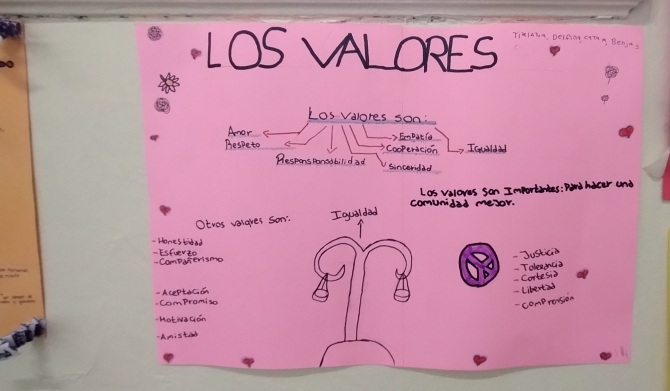 LOS VALORES
Los valores son:
Amor
Respeto
Responsponsabilidad
Empatía
Cooperación
Sinceridad
Igualdad
Los valores son Importantes: Para hacer una
comunidad mejor.
Otros valores son:
- Honestidad
- Esfuerzo
- Compañerismo
- Aceptación
- Compromiso
- Motivación
- Amistad
Igualdad
- Justicia
- Tolerancia
- Cortesía
- Libertad
- Comprensión